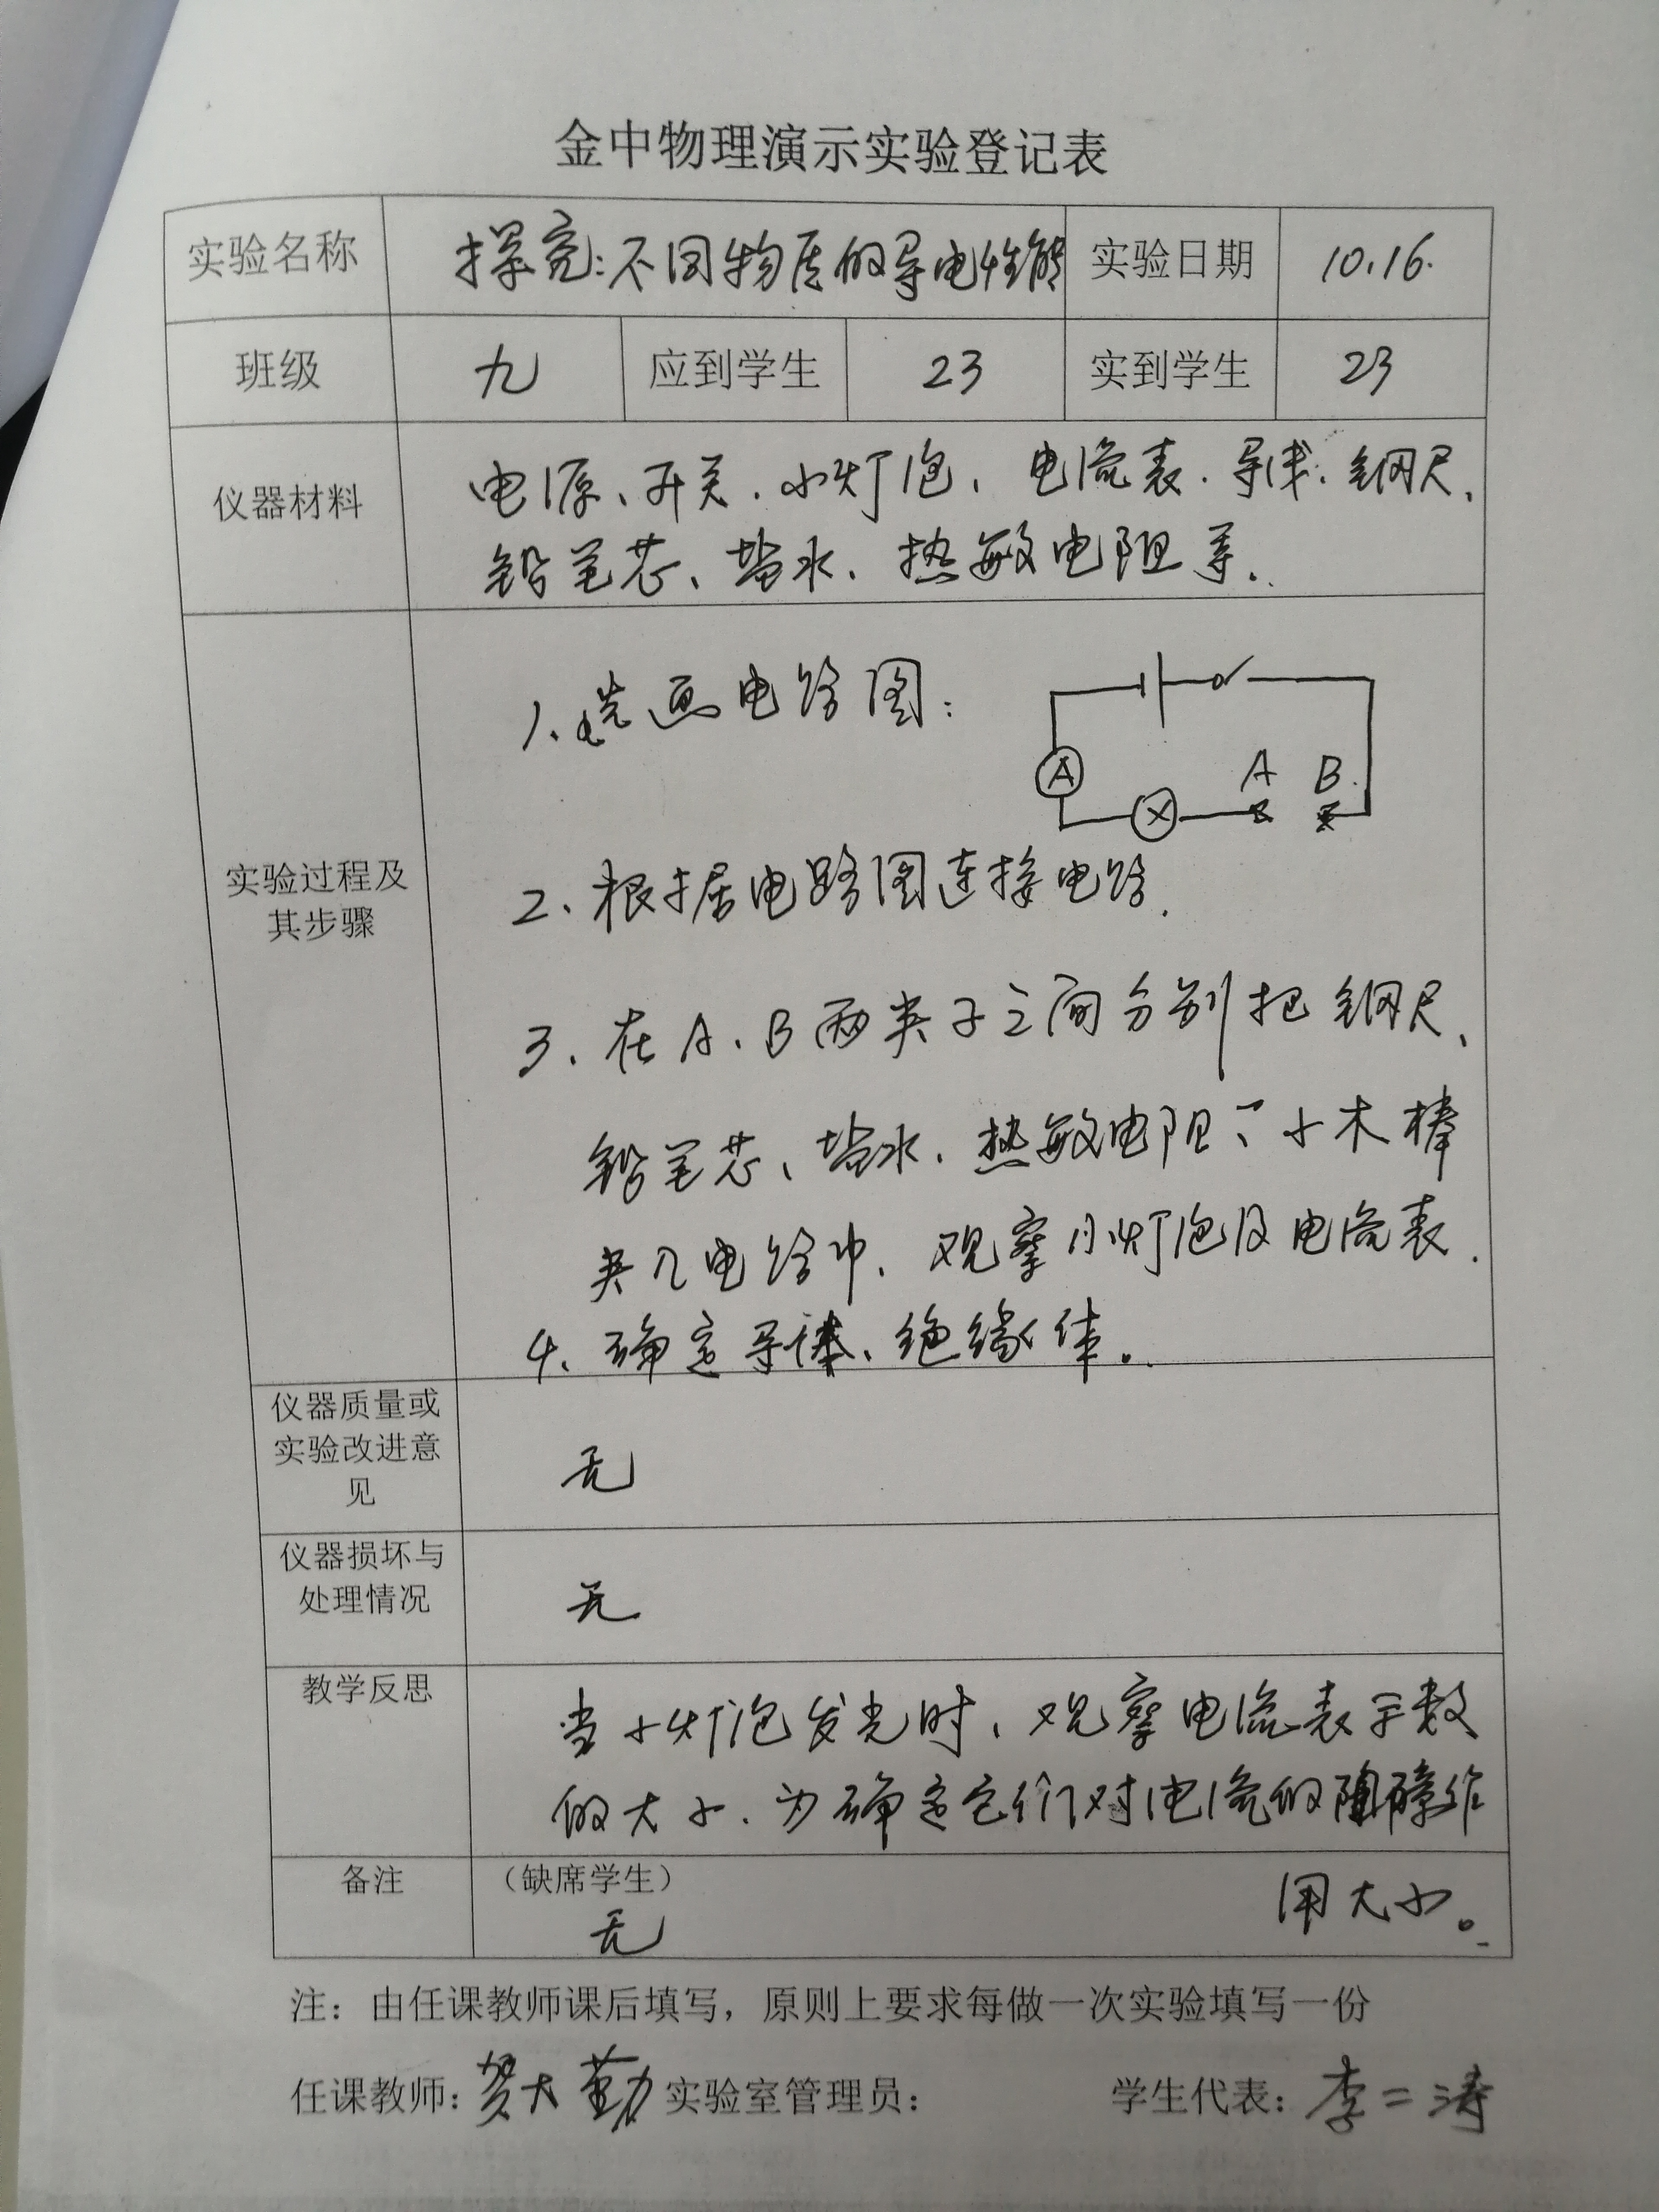 金中物理演示实验登记表
实验名称 探究:不同物质的导电性能 实验日期 10.16.
班级 九 应到学生 23 实到学生 23
仪器材料 电源、开关、小灯泡、电流表、导线、钢尺、
铅笔芯、盐水、热敏电阻等.
1、先画电路图:
A
A B
2、根据电路图连接电路.
实验过程及
其步骤
3、在A、B两夹子之间分别把钢尺、
铅笔芯、盐水、热敏电阻、小木棒
夹入电路中、观察小灯泡及电流表.
4、确定导体、绝缘体。
仪器质量或
实验改进意
见
无
仪器损坏与
处理情况
无
教学反思
当小灯泡发光时、观察电流表示数
的大小、为确定它们对电流的阻碍作
用大小。
备注 (缺席学生)
无
注:由任课教师课后填写,原则上要求每做一次实验填写一份
任课教师:贺大勤 实验室管理员: 学生代表:李二涛